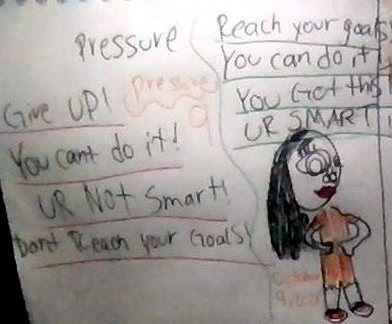 Pressure
Pressure
Give UP!
You cant do it!
UR Not Smart!
Dont Reach your Goals!
Reach your goals
You can do it
You Got this
UR SMART!
October